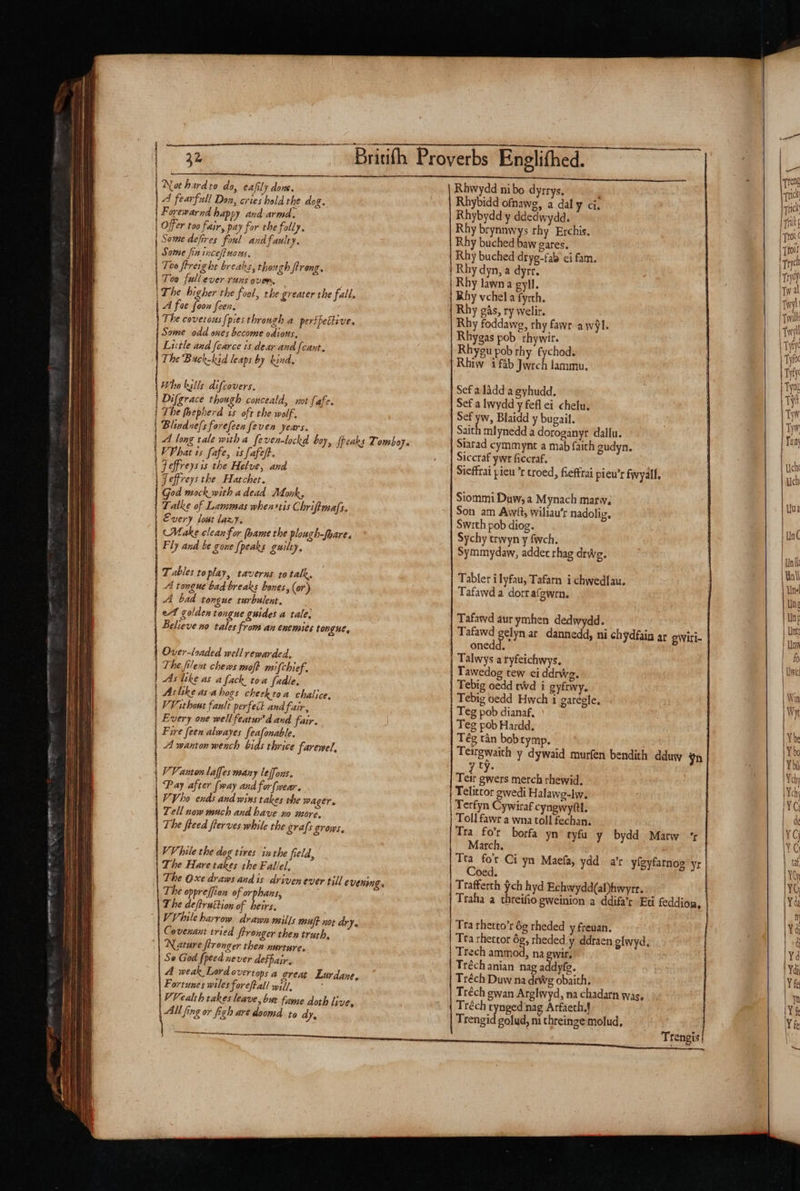 32
Britiſh Proverbs Engliſhed.
Not hard to do, eaſily done.
A fearfull Don, cries hold the dog.
Forewarnd happy and armd.
Offer too fair, pay for the folly.
Some deſires foul and faulty.
Some ſin inceſtuous.
Too ſtreight breaks, though ſtrong.
Too full ever runs over.
The higher the fool, the greater the fall.
A foe ſoon ſeen.
The covetous ſpies through a perſpective.
Some odd ones become odious.
Little and ſcarce is dear and ſcant.
The Buck-kid leaps by kind.
Who kills diſcovers.
Diſgrace though conceald, not ſafe.
The ſhepherd is oft the wolf.
Blindneſs foreſeen ſeven years.
A long tale with a ſeven-lockd boy, ſpeaks Tomboy.
VVhat is ſafe, is ſafeſt.
Jeffreys is the Helve, and
Jeffreys the Hatchet.
God mock with a dead Monk,
Talke of Lammas when'tis Chriſtmaſs.
Every lout lazy.
Make clean for ſhame the plough-ſhare.
Fly and be gone ſpeaks guilty.
Tables to play, taverns to talk.
A tongue bad breaks bones, (or)
A bad tongue turbulent.
A golden tongue guides a tale.
Believe no tales from an enemies tongue,
Over-loaded well rewarded.
The ſilent chews moſt miſchief.
As like as a ſack, to a ſadle.
As like as a hogs cheek to a chalice.
VVithout fault perfect and fair.
Every one well featur'd and fair.
Fire ſeen alwayes ſeaſonable.
A wanton wench bids thrice farewel.
VVanton laſſes many leſſons.
Pay after ſway and forſwear.
VVho ends and wins takes the wager.
Tell now much and have no more.
The ſteed ſterves while the graſs grows.
VVhile the dog tires in the field,
The Hare takes the Fallel.
The Oxe draws and is driven ever till evening.
The oppreſſion of orphans,
The deſtruction of heirs.
VVhile harrow drawn mills muſt not dry.
Covenant tried ſtronger then truth.
Nature ſtronger then nurture.
So God ſpeed never deſpair.
A weak Lord overtops a great Lurdane.
Fortunes wiles foreſtall will.
VVealth takes leave, but fame doth live,
All ſing or ſigh are doomd to dy.
Rhwydd ni bo dyrrys.
Rhybidd ofnawg, a dal y ci.
Rhybydd y ddedwydd.
Rhy brynnwys rhy Erchis.
Rhy buched baw gares.
Rhy buched dryg-fab ei fam.
Rhy dyn, a dyrr.
Rhy lawn a gyll.
Rhy vchel a fyrth.
Rhy gàs, ry welir.
Rhy foddawg, rhy fawr a wŷl.
Rhygas pob rhywir.
Rhygu pob rhy fychod.
Rhiw i fâb Jwrch lammu.
Sef a lâdd a gyhudd.
Sef a lwydd y feſl ei chelu.
Sef yw, Blaidd y bugail.
Saith mlynedd a doroganyr dallu.
Siarad cymmynt a mab ſaith gudyn.
Siccraf ywr ſiccraf.
Sieffrai pieu 'r troed, ſieffrai pieu'r fwyàll.
Siommi Duw, a Mynach marw.
Son am Awſt, wiliau'r nadolig.
Swrth pob diog.
Sychy trwyn y ſwch.
Symmydaw, addef rhag drŵg.
Tabler i lyfau, Tafarn i chwedlau.
Tafawd a dorr aſgwrn.
Tafawd aur ymhen dedwydd.
Tafawd gelyn ar dannedd, ni chŷdfain ar gwiri-
onedd.
Talwys a ryfeichwys.
Tawedog tew ei ddrŵg.
Tebig oedd tŵd i gyfrwy.
Tebig oedd Hwch i garegle.
Teg pob dianaf.
Teg pob Hardd.
Tég tân bob tymp.
Teirgwaith y dywaid murſen bendith dduw ŷn
y tŷ.
Teir gwers merch rhewid.
Telittor gwedi Halawg-lw.
Terfyn Cywiraf cyngwyſtl.
Toll fawr a wna toll fechan.
Tra fo'r borfa yn tyfu y bydd Marw 'r
March.
Tra fo'r Ci yn Maeſa, ydd a'r yſgyfarnog yr
Coed.
Trafferth ŷch hyd Echwydd(al)hwyrr.
Traha a threiſio gweinion a ddifa'r Eti feddion.
Tra rhetto'r ôg rheded y freuan.
Tra rhettor ôg, rheded y ddraen glwyd.
Trech ammod, na gwir.
Tréch anian nag addyſg.
Tréch Duw na drŵg obaith.
Tréch gwan Arglwyd, na chadarn was.
Tréch tynged nag Arfaeth.
Trengid golud, ni threinge molud,
Trengis